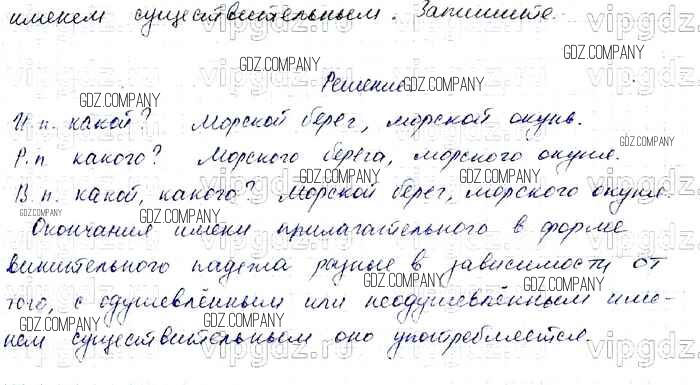 именем существительным. Запишите.
Решение
И.п. какой? Морской берег, морской окунь.
Р.п какого? Морского берега, морского окуня.
В.п. какой, какого? Морской берег, морского окуня.
Окончания имени прилагательного в форме
винительного падежа разные в зависимости от
того, с одушевлённым или неодушевлённым име-
нем существительным оно употребляется.